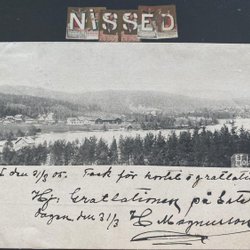 NiSSED
Hol
den 31/3 05. Tack för kortet o gratulat
Hj. Gratulationer på
Dagen den 31/3 H. Magnusson